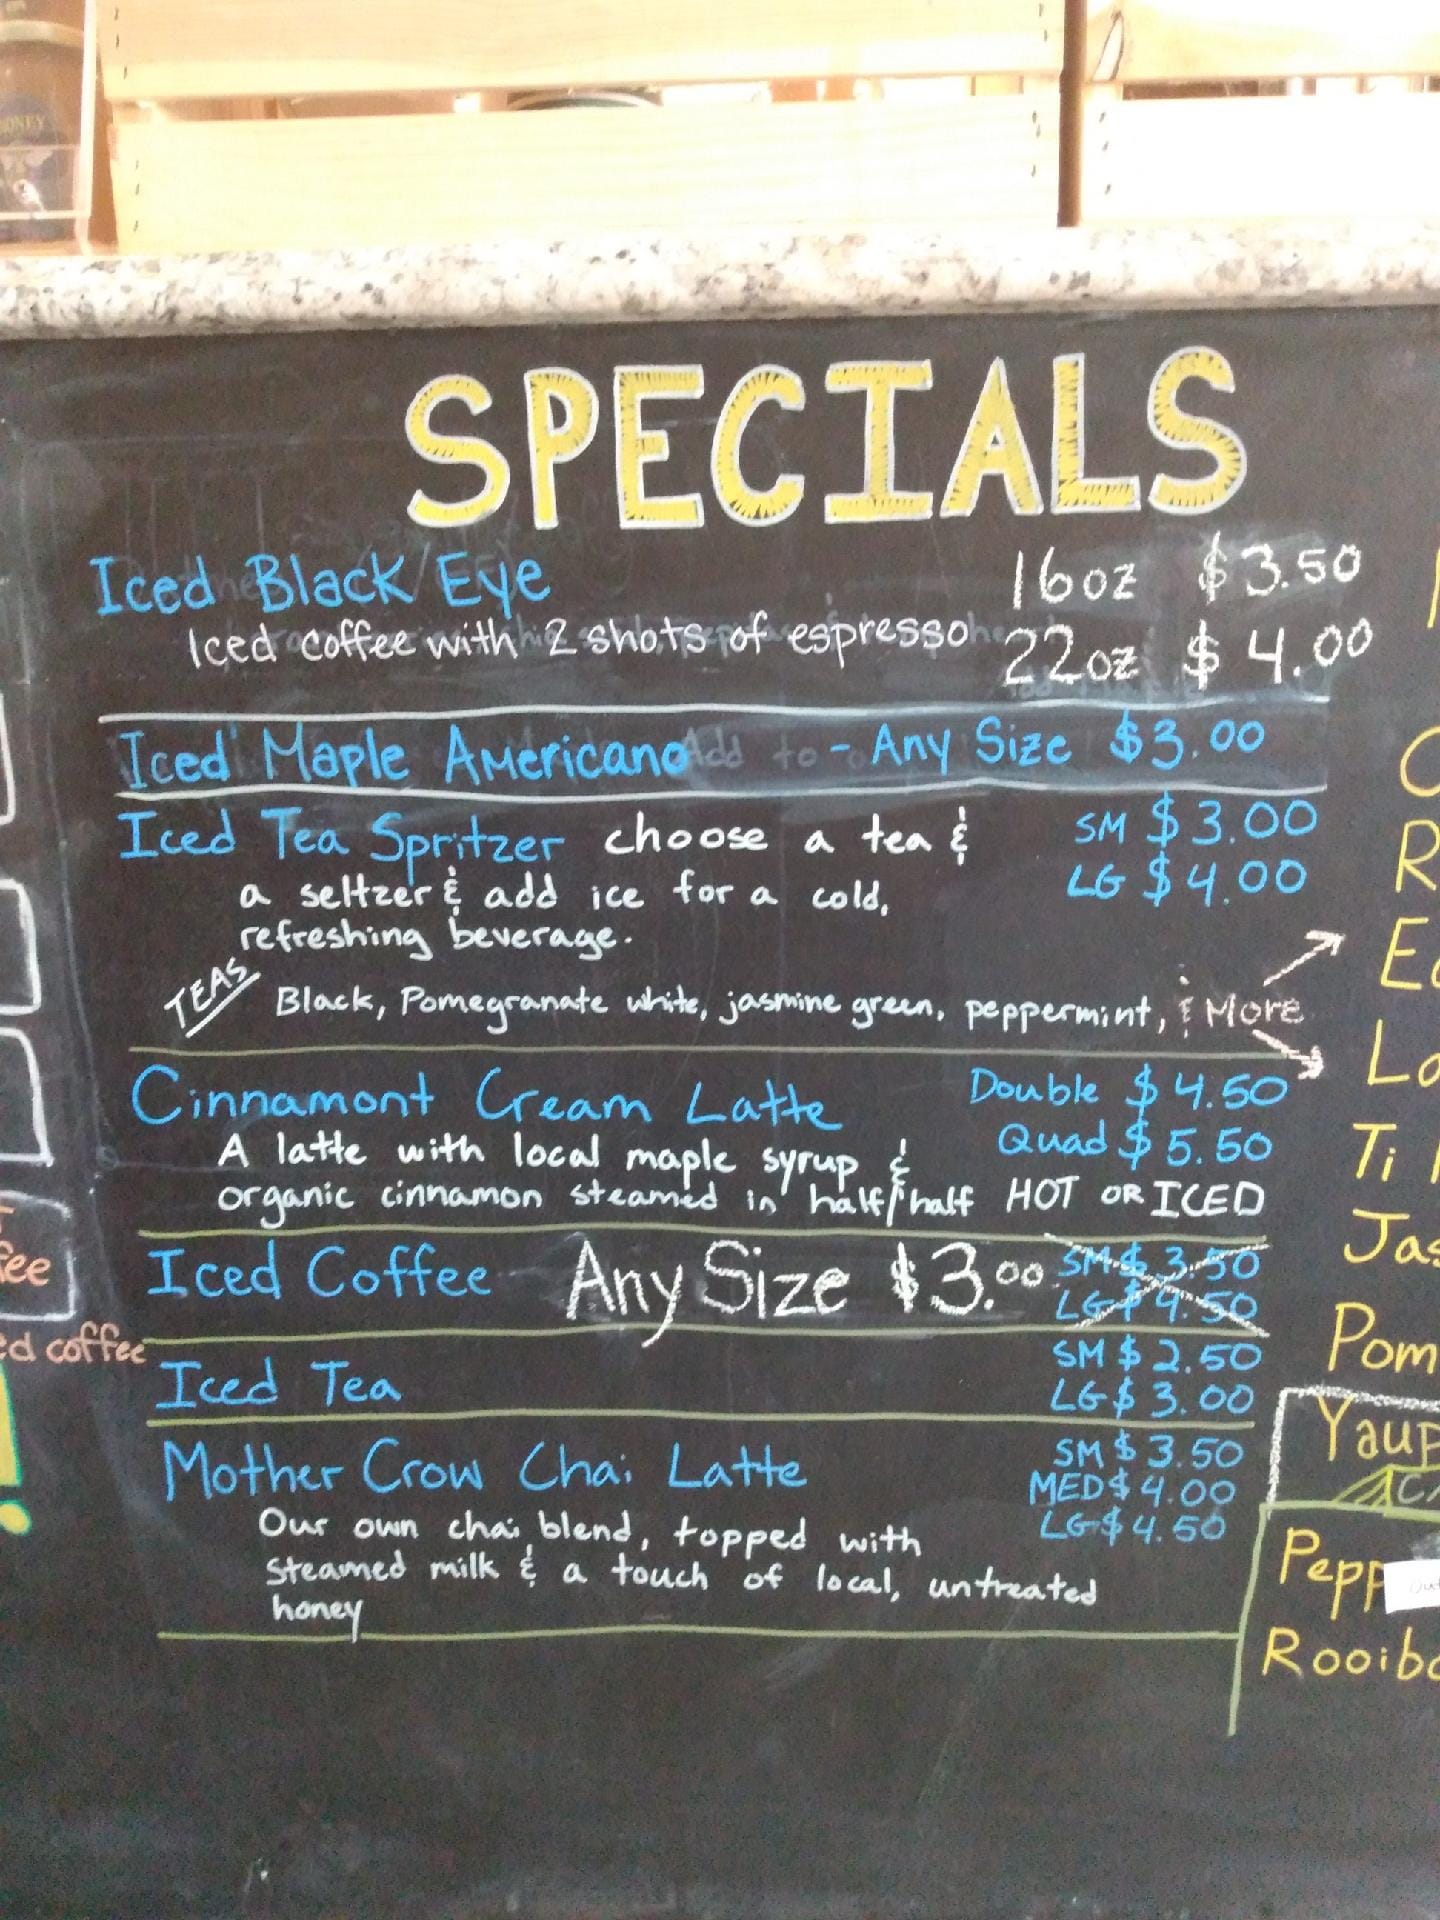 HONEY
SPECIALS
Iced Black Eye
Iced coffee with 2 shots of espresso
16oz $3.50
22oz $4.00
Iced Maple Americano - Any Size $3.00
Iced Tea Spritzer choose a tea &
a seltzer & add ice for a cold,
refreshing beverage.
SM $3.00
LG $4.00
TEAS
Black, Pomegranate white, jasmine green, peppermint, & More
Cinnamont Cream Latte
A latte with local maple syrup &
organic cinnamon steamed in half/half
Double $4.50
Quad $5.50
HOT OR ICED
Iced Coffee Any Size $3.00
SM $3.50
LG $4.50
Iced Tea
SM $2.50
LG $3.00
Mother Crow Chai Latte
Our own chai blend, topped with
steamed milk & a touch of local, untreated
honey
SM $3.50
MED $4.00
LG $4.50
fee
ed coffee
!
C
R
Ea
Lo
Ti
Jas
Pom
Yaup
CA
Pepp
Out
Rooibo